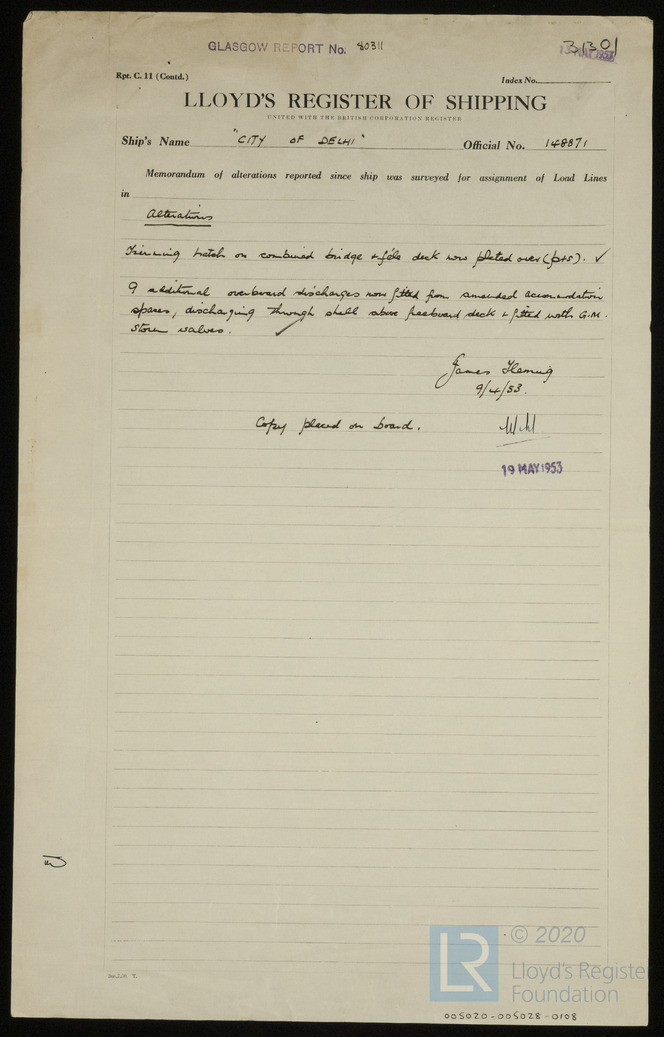 GLASGOW REPORT No. 80311
31301
Rpt. C. 11 (Contd.)
Index No.
LLOYD'S REGISTER OF SHIPPING
UNITED WITH THE BRITISH CORPORATION REGISTER
Ship's Name "CITY OF DELHI" Official No. 148871
Memorandum of alterations reported since ship was surveyed for assignment of Load Lines
in
Alterations
Trimming hatch on combined bridge & f'cle deck now plated over (p+s). ✓
9 additional overboard discharges now fitted from amended accommodation
spaces, discharging through shell above freeboard deck & fitted with G.M.
storm valves. ✓
James Fleming
9/4/53.
Copy placed on board.
19 MAY 1953
© 2020
LR
Lloyd's Register
Foundation
005020-005028-0108